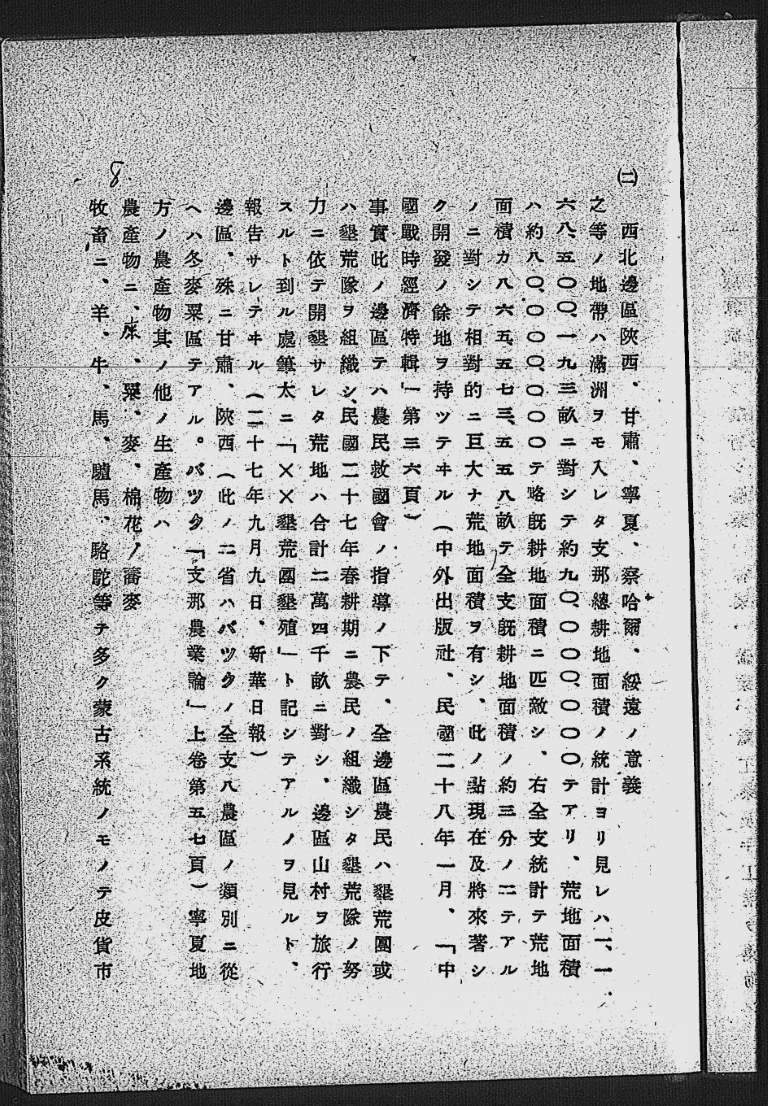 (二) 西北邊區陝西、甘肅、寧夏、察哈爾、綏遠ノ意義
之等ノ地帶ハ滿洲ヲモ入レタ支那總耕地面積ノ統計ヨリ見レハ一、一
六八、五〇〇、一九三畝ニ對シテ約九〇、〇〇〇、〇〇〇テアリ、荒地面積
ハ約八〇、〇〇〇、〇〇〇テ略既耕地面積ニ匹敵シ、右全支統計テ荒地
面積カ八六五、五七三、五五八畝テ全支既耕地面積ノ約三分ノ二テアル
ノニ對シテ相對的ニ巨大ナ荒地面積ヲ有シ、此ノ點現在及將來著シ
ク開發ノ餘地ヲ持ツテヰル(中外出版社、民國二十八年一月、「中
國戰時經濟特輯」第三六頁)
事實此ノ邊區テハ農民救國會ノ指導ノ下テ、全邊區農民ハ墾荒團或
ハ墾荒隊ヲ組織シ、民國二十七年春耕期ニ農民ノ組織シタ墾荒隊ノ努
力ニ依テ開墾サレタ荒地ハ合計二萬四千畝ニ對シ、邊區山村ヲ旅行
スルト到ル處筆太ニ「××墾荒團墾殖」ト記シテアルノヲ見ルト、
報告サレテヰル(二十七年九月九日、新華日報)
邊區、殊ニ甘肅、陝西(此ノ二省ハバツクノ全支八農區ノ類別ニ從
ヘハ冬麥粟區テアル。バツク「支那農業論」上卷第五七頁)寧夏地
方ノ農產物其ノ他ノ生產物ハ
農產物ニ、糜、粟、麥、棉花、蕎麥
牧畜ニ、羊、牛、馬、驢馬、駱駝等テ多ク蒙古系統ノモノテ皮貨市
8